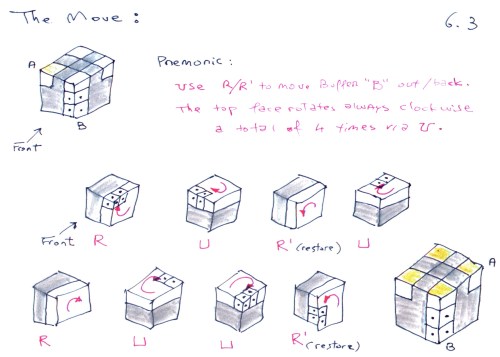 The Move :
6.3
A
B
Front
Pnemonic :
use R/R' to move Buffer "B" out/back.
The top face rotates always clockwise
a total of 4 times via U.
Front
R
U
R' (restore)
U
R
U
U
R' (restore)
A
B